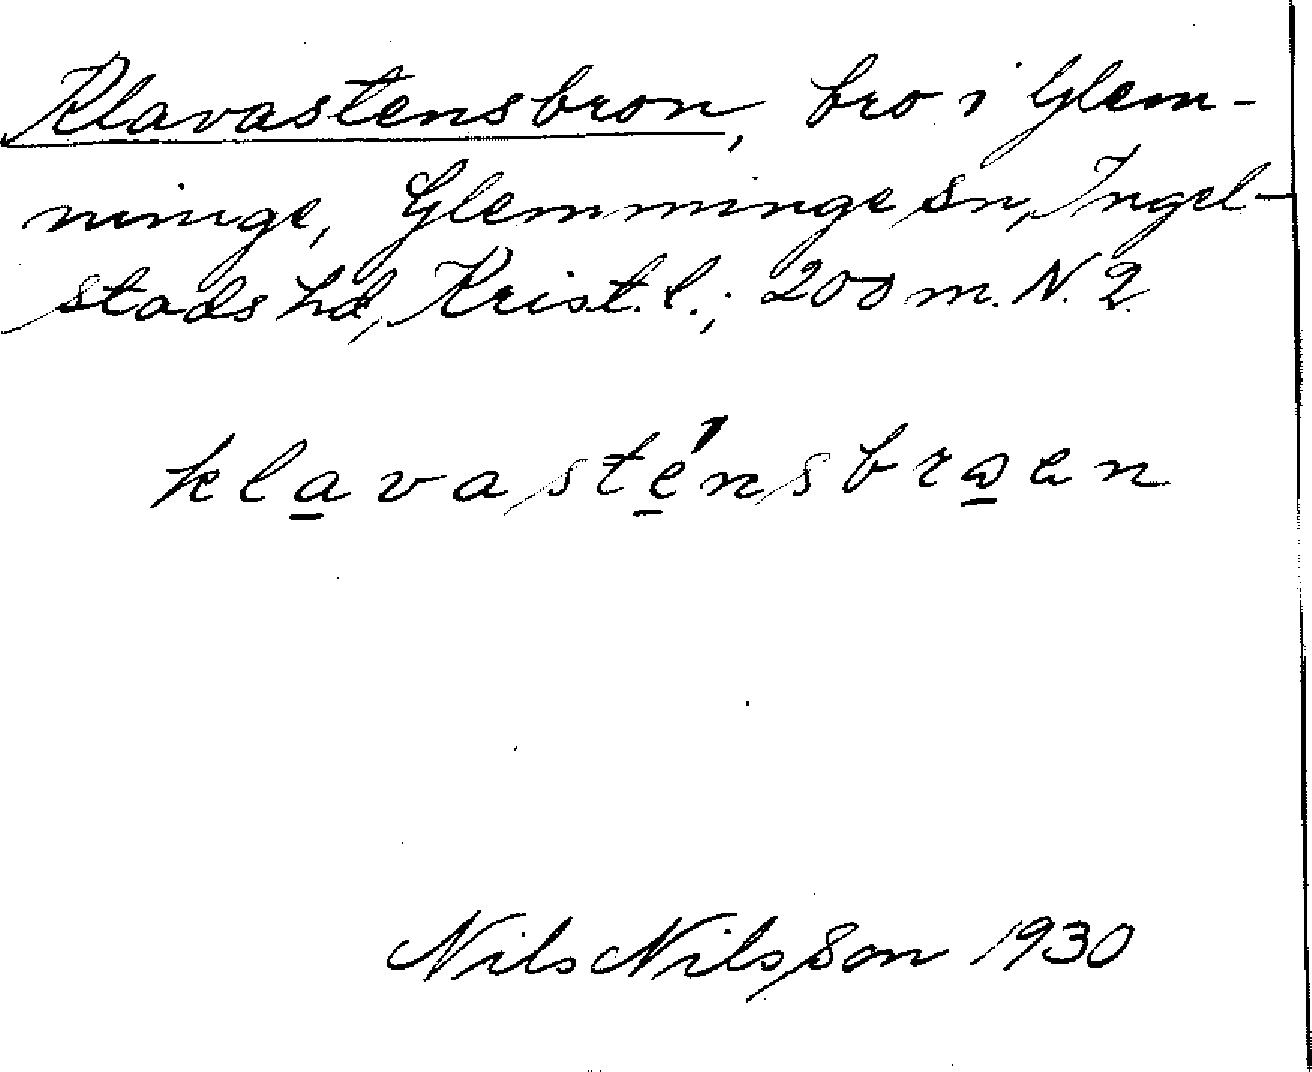 Klavastensbron, bro i Glem-
minge, Glemminge sn, Ingel-
stads hd, Krist. l.; 200 m. N. 2.
klavasténsbroen
Nils Nilsson 1930